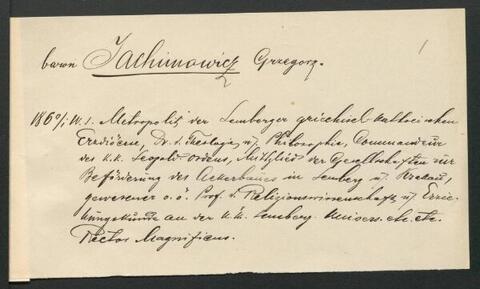 baron Jachimowicz Grzegorz.
1
1860/1 W.S. Metropolit der Lemberger griechisch katholischen
Erzdiöcese, Dr. d. Theologie u. Philosophie, Commandeur
des k.k. Leopold Ordens, Mitglied der Gesellschaften zur
Beförderung des Ackerbaues in Lemberg u. Breslau,
gewesener o.ö. Prof. d. Religionswissenschaft u. Erzie-
hungskunde an der k.k. Lemberg. Univers. etc. etc.
Rector Magnificus.